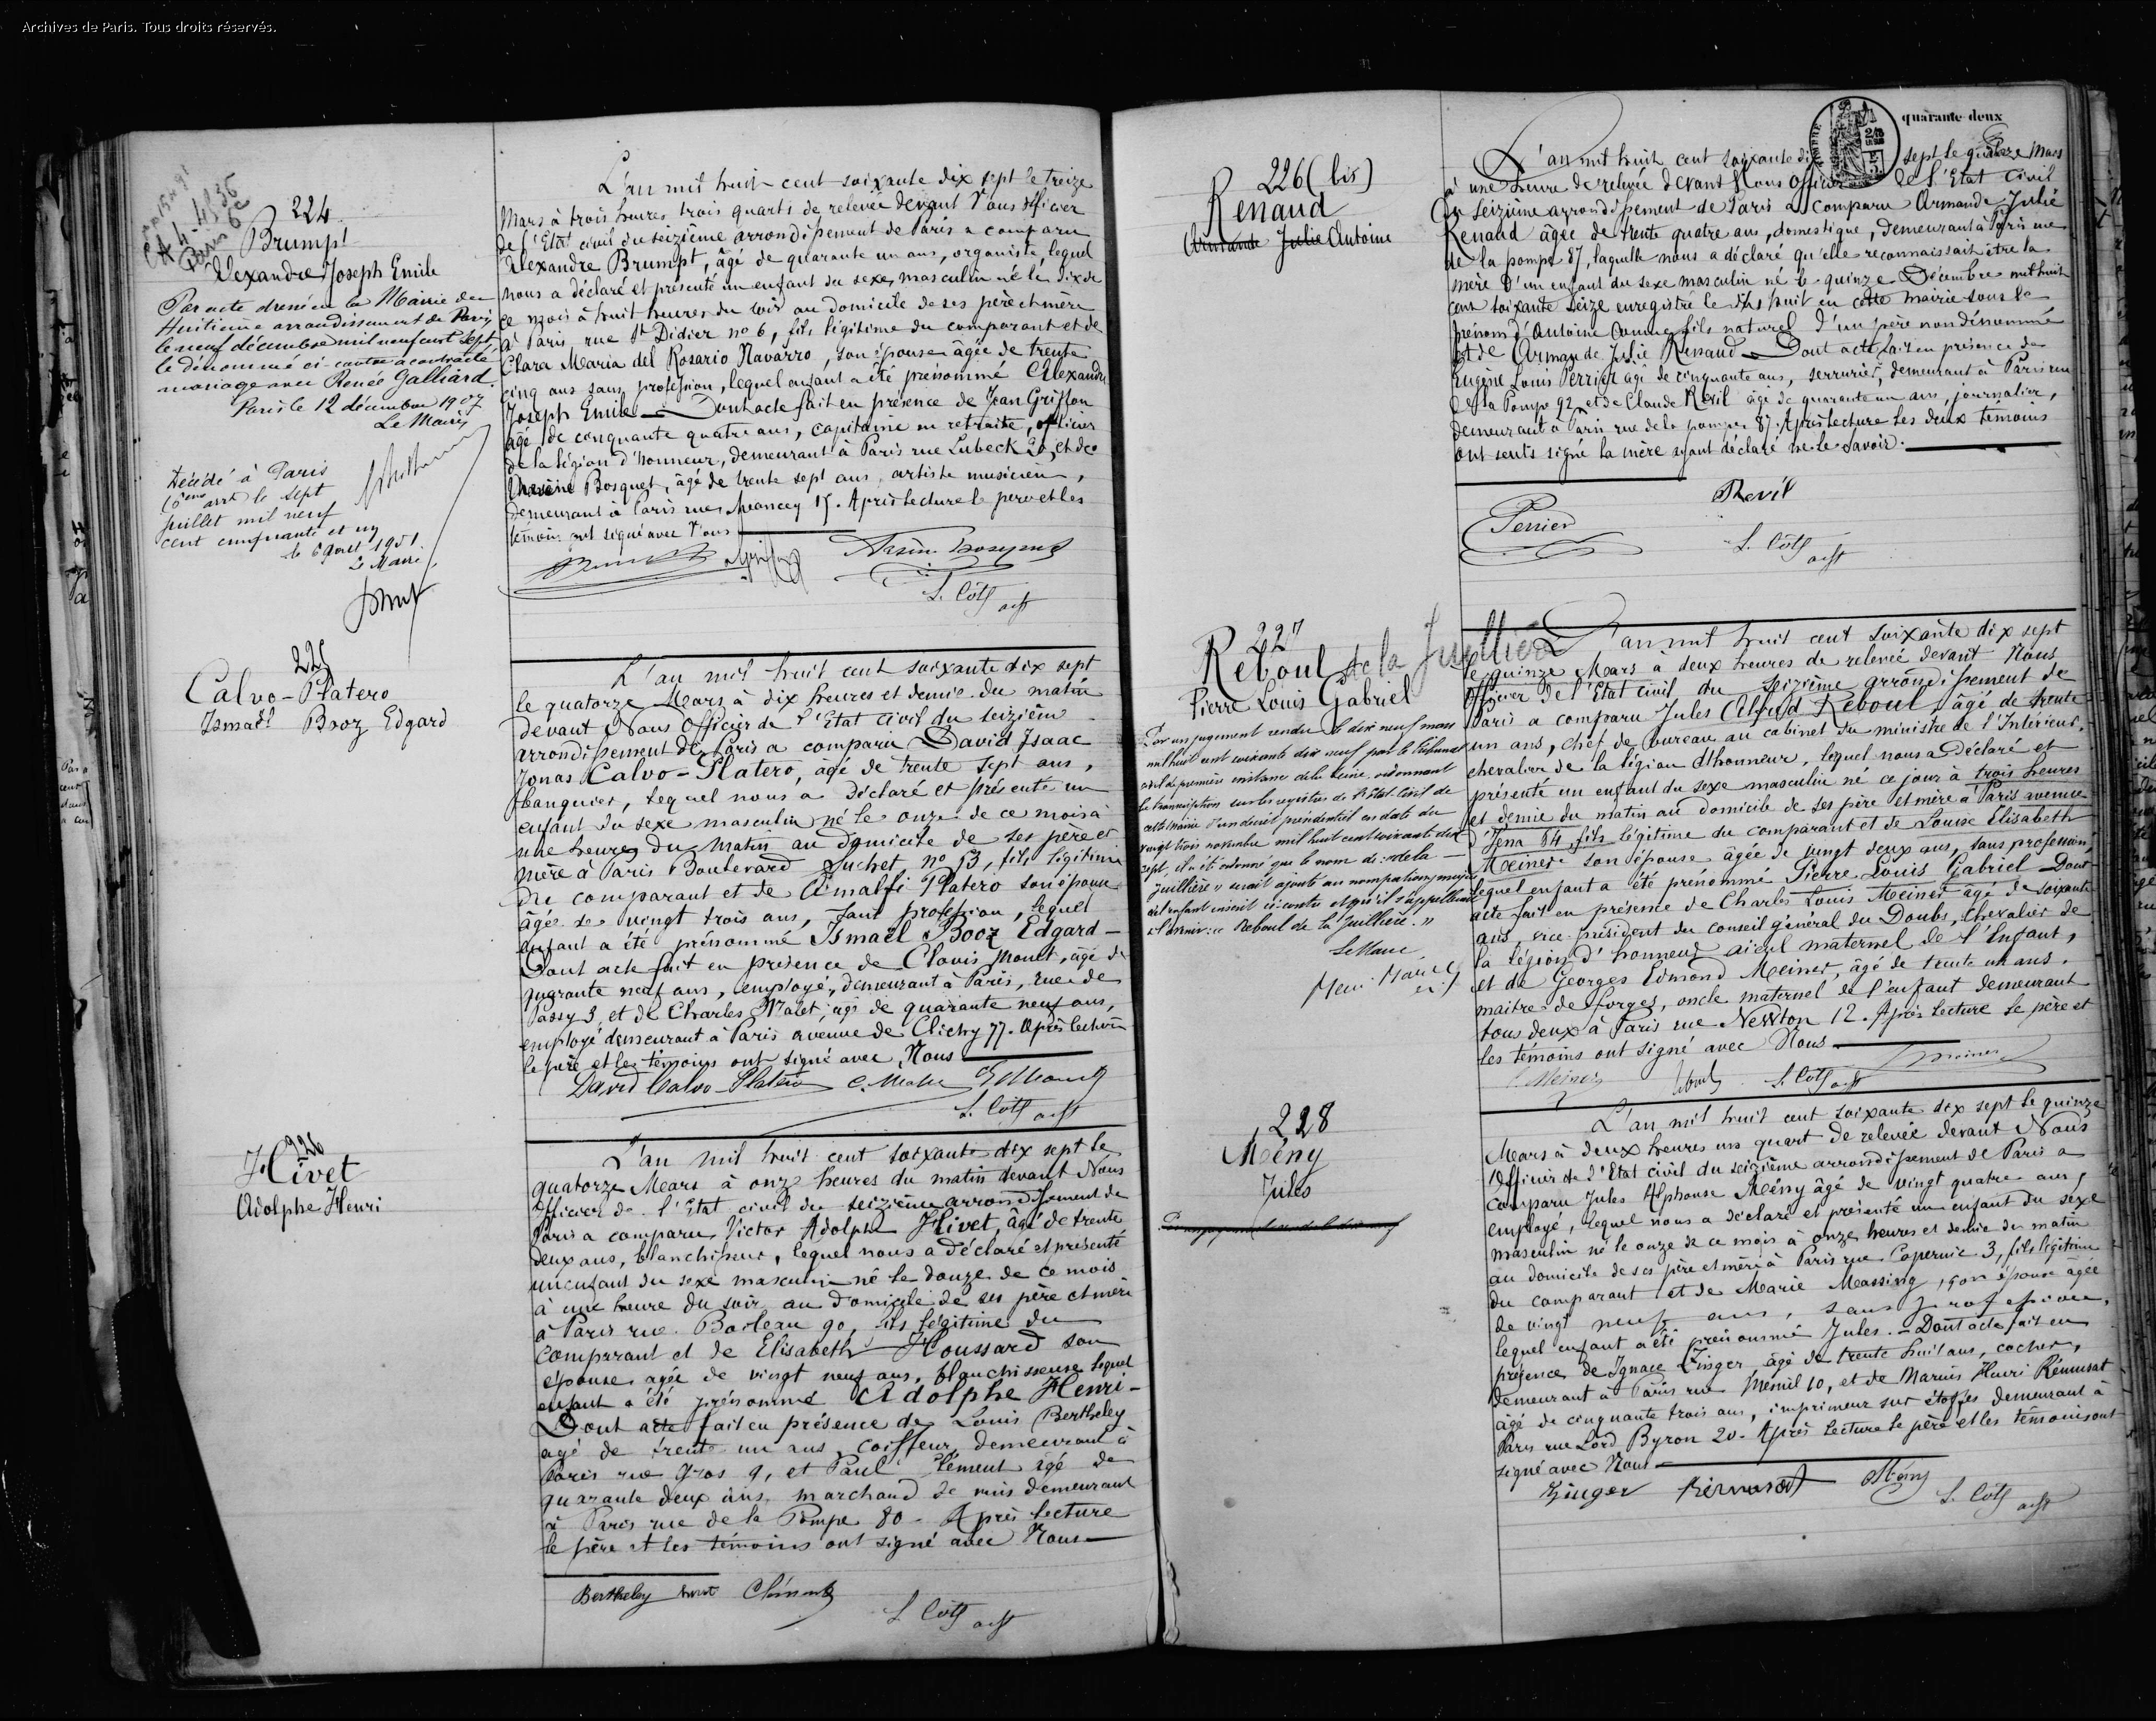 Archives de Paris. Tous droits réservés.
224
Brumpt
Alexandre Joseph Emile
Par acte dressé en la Mairie du
Huitième arrondissement de Paris
le neuf décembre mil neuf cent sept
le dénommé ci-contre a contracté
mariage avec Renée Galliard.
Paris le 12 décembre 1907
Le Maire
Décédé à Paris
le sept
juillet mil neuf
cent cinquante et un
le 6 août 1951
Le Maire
L'an mil huit cent soixante dix sept le treize
Mars à trois heures trois quarts de relevée devant Nous Officier
de l'Etat civil du seizième arrondissement de Paris a comparu
Alexandre Brumpt, âgé de quarante un ans, organiste, lequel
nous a déclaré et présenté un enfant du sexe masculin né le dix de
ce mois à huit heures du soir au domicile de ses père et mère
à Paris rue St Didier no 6, fils légitime du comparant et de
Clara Maria del Rosario Navarro, son épouse âgée de trente
cinq ans sans profession, lequel enfant a été prénommé Alexandre
Joseph Emile - Dont acte fait en présence de Jean Griffon
âgé de cinquante quatre ans, capitaine en retraite, officier
de la légion d'honneur, demeurant à Paris rue Lubeck 20, et de
Bosquet, âgé de trente sept ans, artiste musicien,
demeurant à Paris rue Moncey 15. Après lecture le père et les
témoins ont signé avec Nous
225
Calvo-Platero
Ismaël Booz Edgard
L'an mil huit cent soixante dix sept
le quatorze Mars à dix heures et demie du matin
devant Nous Officier de l'Etat civil du seizième
arrondissement de Paris a comparu David Isaac
Jonas Calvo-Platero, âgé de trente sept ans,
banquier, lequel nous a déclaré et présenté un
enfant du sexe masculin né le onze de ce mois à
une heure du matin au domicile de ses père et
mère à Paris Boulevard Suchet no 13, fils légitime
du comparant et de Amalfi Platero son épouse
âgée de vingt trois ans, sans profession, lequel
enfant a été prénommé Ismaël Booz Edgard -
Dont acte fait en présence de Clovis Mouet, âgé de
quarante neuf ans, employé, demeurant à Paris, rue de
Passy 3, et de Charles Malet, âgé de quarante neuf ans,
employé demeurant à Paris avenue de Clichy 77. Après lecture
le père et les témoins ont signé avec Nous
David Calvo-Platero
226
Hivet
Adolphe Henri
L'an mil huit cent soixante dix sept le
quatorze Mars à onze heures du matin devant Nous
Officier de l'Etat civil du seizième arrondissement de
Paris a comparu Victor Adolphe Hivet, âgé de trente
deux ans, blanchisseur, lequel nous a déclaré et présenté
un enfant du sexe masculin né le douze de ce mois
à une heure du soir au domicile de ses père et mère
à Paris rue Boileau 90, fils légitime du
comparant et de Elisabeth Houssard son
épouse âgée de vingt neuf ans, blanchisseuse lequel
enfant a été prénommé Adolphe Henri -
Dont acte fait en présence de Louis Bertheley
âgé de trente un ans, coiffeur, demeurant à
Paris rue Gros 9, et Paul Clément âgé de
quarante deux ans, marchand de vins demeurant
à Paris rue de la Pompe 80. Après lecture
le père et les témoins ont signé avec Nous
Bertheley Hivet Clément
quarante-deux
226 (bis)
Renaud
Armande Julie Antoine
L'an mil huit cent soixante dix sept le quatorze Mars
à une heure de relevée devant Nous Officier de l'Etat civil
du seizième arrondissement de Paris a comparu Armande Julie
Renaud âgée de trente quatre ans, domestique, demeurant à Paris rue
de la pompe 87, laquelle nous a déclaré qu'elle reconnaissait être la
mère d'un enfant du sexe masculin né le quinze Décembre mil huit
cent soixante seize enregistré le dix huit en cette mairie sous le
prénom d'Antoine comme fils naturel d'un père non dénommé
et de Armande Julie Renaud - Dont acte fait en présence de
Eugène Louis Perrier âgé de cinquante ans, serrurier, demeurant à Paris rue
de la Pompe 92, et de Claude Revil âgé de quarante un ans, journalier,
demeurant à Paris rue de la pompe 87. Après lecture les deux témoins
ont seuls signé la mère ayant déclaré ne le savoir.
Perrier
Revil
227
Reboul de la Juillière
Pierre Louis Gabriel
Par un jugement rendu le dix neuf mars
mil huit cent soixante dix neuf par le tribunal
civil de première instance de la Seine, ordonnant
la transcription sur les registres de l'Etat Civil de
cette Mairie d'un décret présidentiel en date du
vingt trois novembre mil huit cent soixante dix
sept, il a été ordonné que le nom de "de la
Juillière" serait ajouté au nom patronymique
de l'enfant inscrit ci-contre et qu'il s'appellerait
à l'avenir: "Reboul de la Juillière."
Le Maire
L'an mil huit cent soixante dix sept
le quinze Mars à deux heures de relevée devant Nous
Officier de l'Etat civil du seizième arrondissement de
Paris a comparu Jules Alfred Reboul, âgé de trente
un ans, chef de bureau au cabinet du ministre de l'Intérieur,
chevalier de la légion d'honneur, lequel nous a déclaré et
présenté un enfant du sexe masculin né ce jour à trois heures
et demie du matin au domicile de ses père et mère à Paris avenue
d'Jéna 64, fils légitime du comparant et de Louise Elisabeth
Meiner son épouse âgée de vingt deux ans, sans profession,
lequel enfant a été prénommé Pierre Louis Gabriel - Dont
acte fait en présence de Charles Louis Meiner âgé de soixante
ans, vice-président du conseil général du Doubs, Chevalier de
la Légion d'honneur aïeul maternel de l'Enfant,
et de Georges Edmond Meiner, âgé de trente un ans,
maître de forges, oncle maternel de l'enfant demeurant
tous deux à Paris rue Newton 12. Après lecture le père et
les témoins ont signé avec Nous
228
Mény
Jules
L'an mil huit cent soixante dix sept le quinze
Mars à deux heures un quart de relevée devant Nous
Officier de l'Etat civil du seizième arrondissement de Paris a
comparu Jules Alphonse Mény âgé de vingt quatre ans,
employé, lequel nous a déclaré et présenté un enfant du sexe
masculin né le onze de ce mois à onze heures et demie du matin
au domicile de ses père et mère à Paris rue Copernic 3, fils légitime
du comparant et de Marie Massing, son épouse âgée
de vingt neuf ans, sans profession,
lequel enfant a été prénommé Jules. - Dont acte fait en
présence de Ignace Zinger âgé de trente huit ans, cocher,
demeurant à Paris rue Mesnil 10, et de Marius Henri Rémusat
âgé de cinquante trois ans, imprimeur sur étoffes demeurant à
Paris rue Lord Byron 20. Après lecture le père et les témoins ont
signé avec Nous
Zinger Rémusat Mény